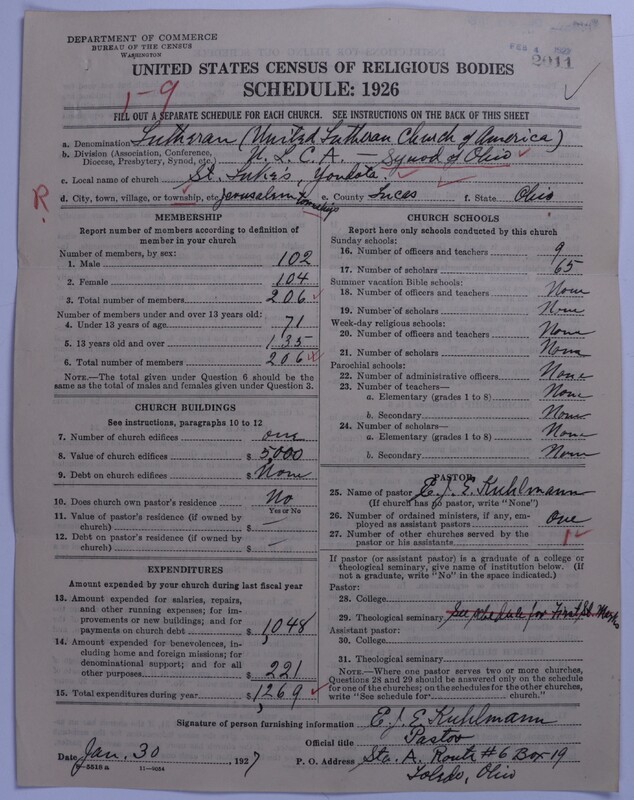 DEPARTMENT OF COMMERCE
BUREAU OF THE CENSUS
WASHINGTON
FEB 4 1927
2011
UNITED STATES CENSUS OF RELIGIOUS BODIES
SCHEDULE: 1926
1-9
FILL OUT A SEPARATE SCHEDULE FOR EACH CHURCH. SEE INSTRUCTIONS ON THE BACK OF THIS SHEET
a. Denomination Lutheran (United Lutheran Church of America)
b. Division (Association, Conference, Diocese, Presbytery, Synod, etc.) U. L. C. A. — Synod of Ohio
c. Local name of church St. Luke's, Yondota
R
d. City, town, village, or township, etc. Jerusalem township e. County Lucas f. State Ohio
MEMBERSHIP
Report number of members according to definition of member in your church
Number of members, by sex:
1. Male 102
2. Female 104
3. Total number of members 206
Number of members under and over 13 years old:
4. Under 13 years of age 71
5. 13 years old and over 135
6. Total number of members 206
NOTE.—The total given under Question 6 should be the same as the total of males and females given under Question 3.
CHURCH BUILDINGS
See instructions, paragraphs 10 to 12
7. Number of church edifices one
8. Value of church edifices $ 5,000
9. Debt on church edifices $ None
10. Does church own pastor's residence No
Yes or No
11. Value of pastor's residence (if owned by church) $ —
12. Debt on pastor's residence (if owned by church) $ —
EXPENDITURES
Amount expended by your church during last fiscal year
13. Amount expended for salaries, repairs, and other running expenses; for improvements or new buildings; and for payments on church debt $ 1,048
14. Amount expended for benevolences, including home and foreign missions; for denominational support; and for all other purposes $ 221
15. Total expenditures during year $ 1,269
CHURCH SCHOOLS
Report here only schools conducted by this church
Sunday schools:
16. Number of officers and teachers 9
17. Number of scholars 65
Summer vacation Bible schools:
18. Number of officers and teachers None
19. Number of scholars None
Week-day religious schools:
20. Number of officers and teachers None
21. Number of scholars None
Parochial schools:
22. Number of administrative officers None
23. Number of teachers—
a. Elementary (grades 1 to 8) None
b. Secondary None
24. Number of scholars—
a. Elementary (grades 1 to 8) None
b. Secondary None
PASTOR
25. Name of pastor E. J. E. Kuhlmann
(If church has no pastor, write "None")
26. Number of ordained ministers, if any, employed as assistant pastors one
27. Number of other churches served by the pastor or his assistants 1
If pastor (or assistant pastor) is a graduate of a college or theological seminary, give name of institution below. (If not a graduate, write "No" in the space indicated.)
Pastor:
28. College
29. Theological seminary See schedule for First St. Marks
Assistant pastor:
30. College
31. Theological seminary
NOTE.—Where one pastor serves two or more churches, Questions 28 and 29 should be answered only on the schedule for one of the churches; on the schedules for the other churches, write "See schedule for church."
Signature of person furnishing information E. J. E. Kuhlmann
Official title Pastor
Date Jan. 30, 1927 P. O. Address Sta. A. Route #6 Box 19
Toledo, Ohio
5518 a 11-9054